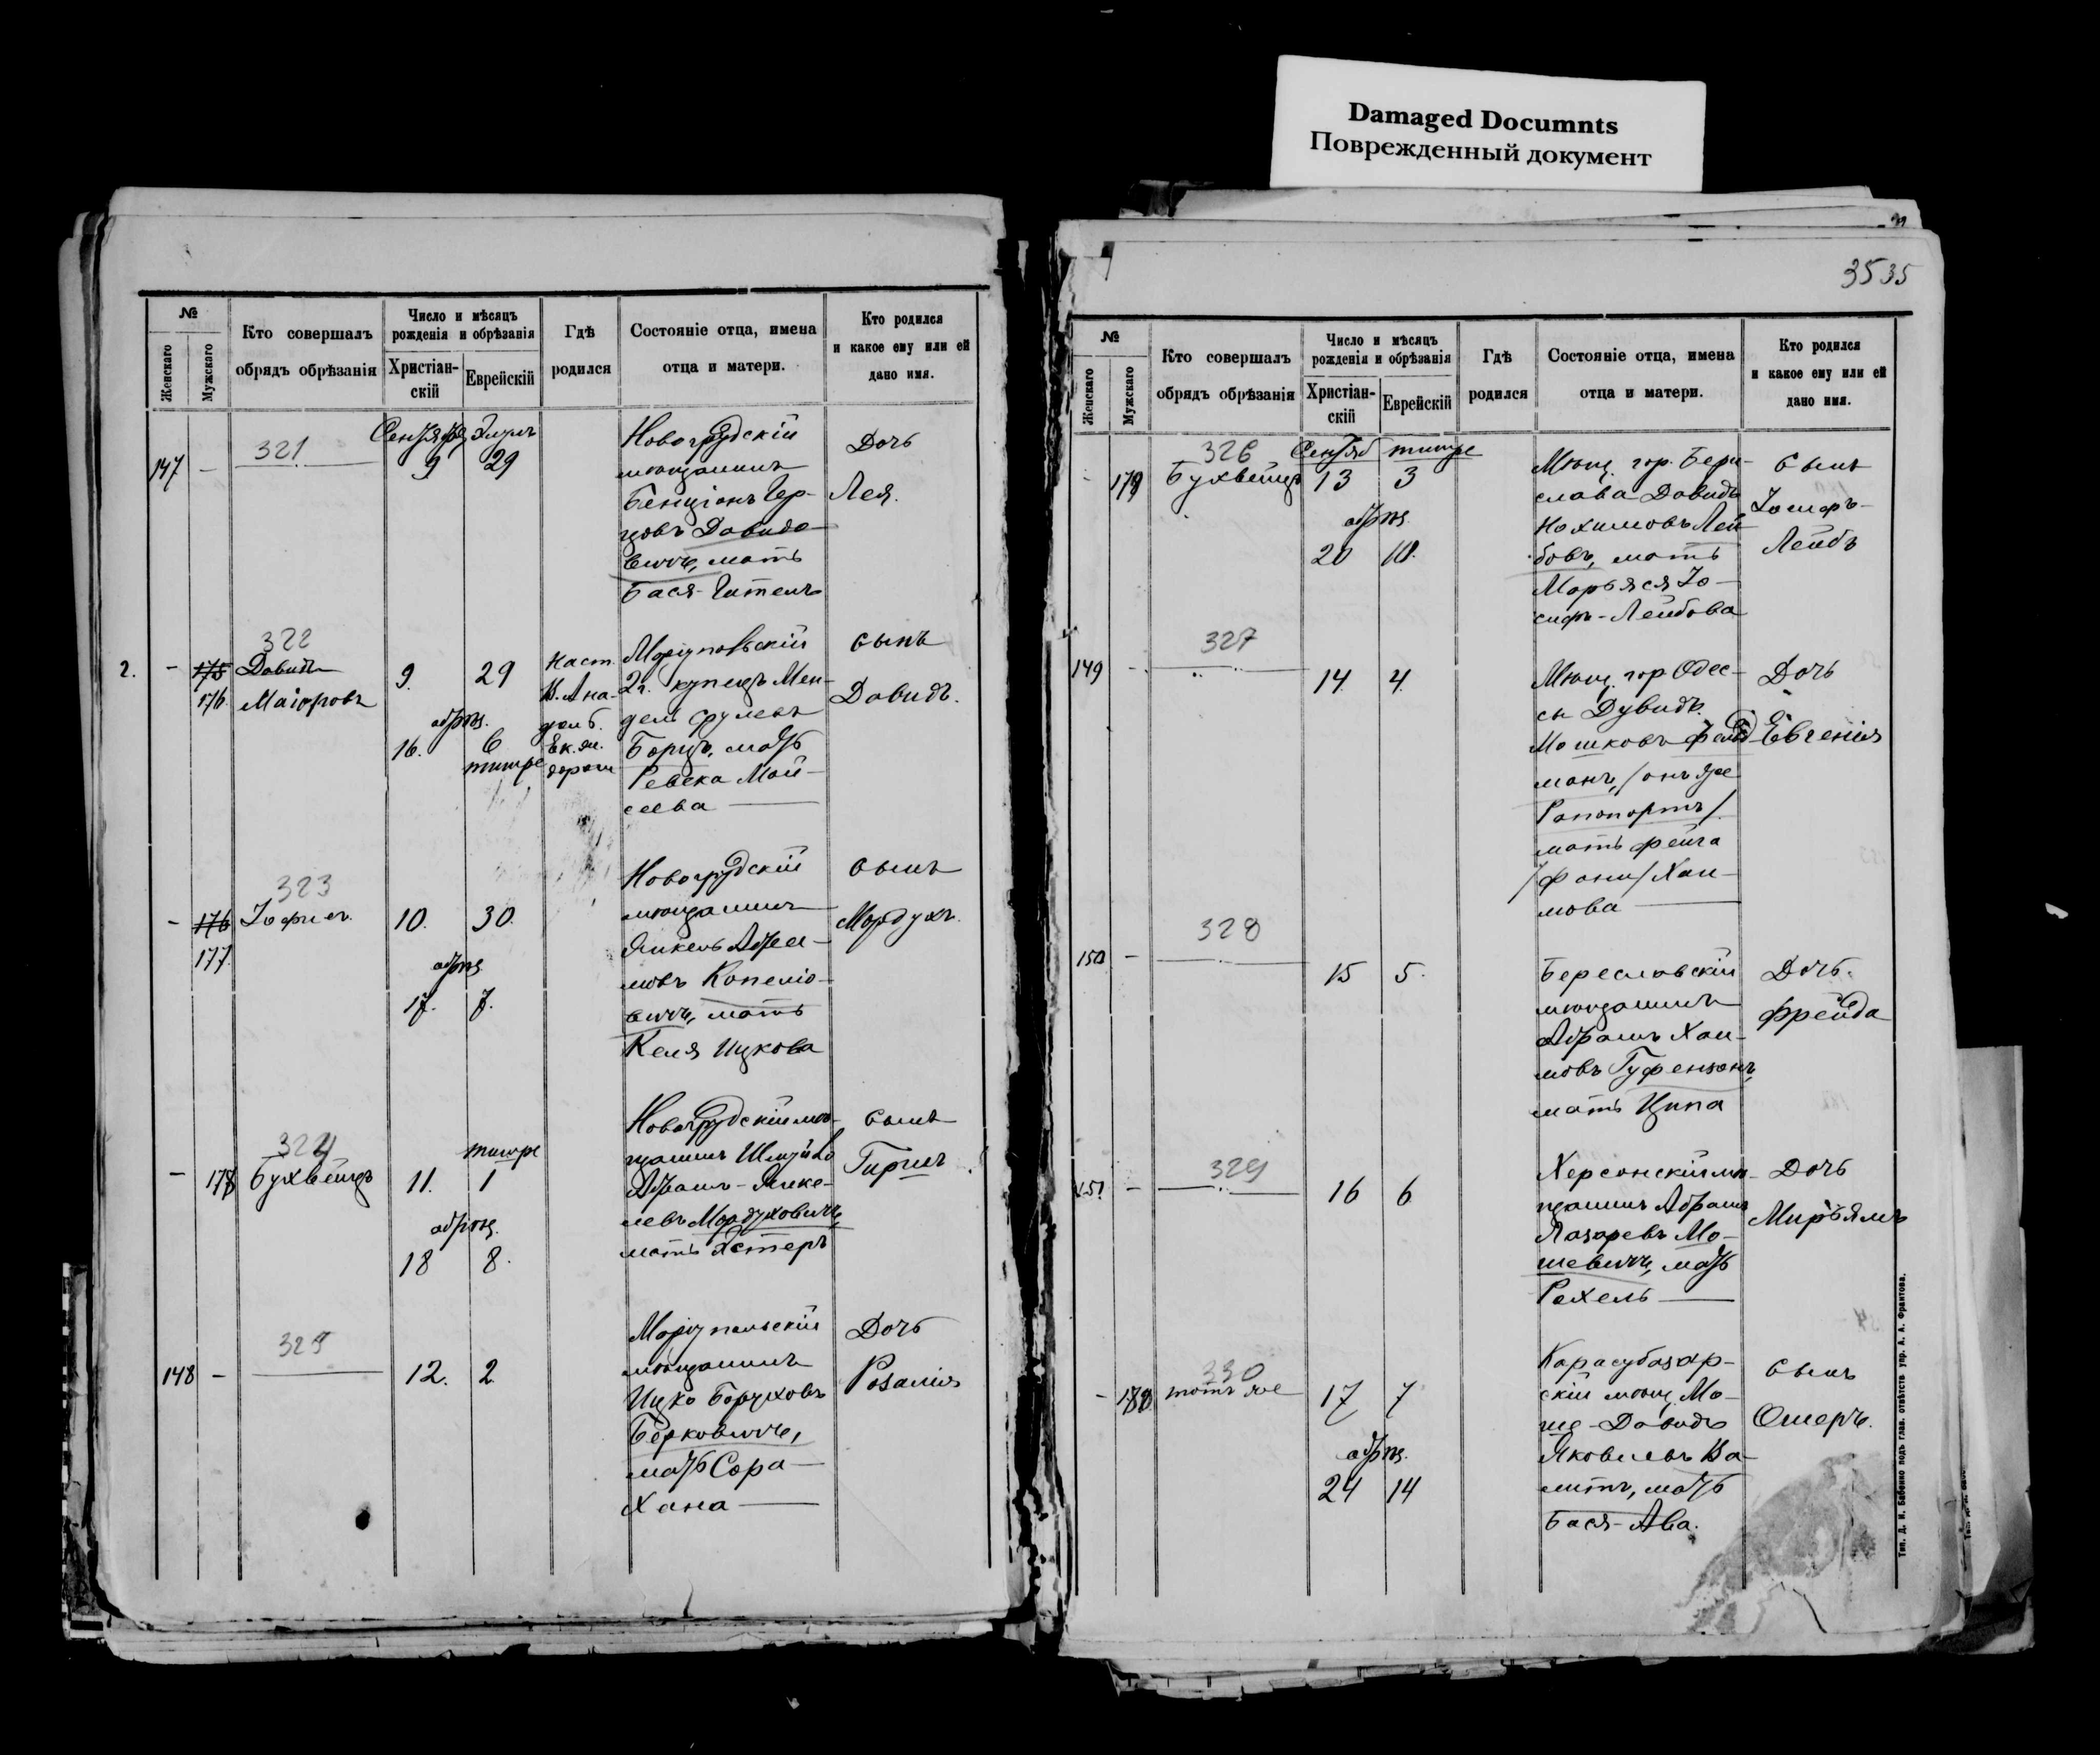 Damaged Documnts
Поврежденный документ
№
Женскаго
Мужскаго
Кто совершалъ
обрядъ обрѣзанія
Число и мѣсяцъ
рожденія и обрѣзанія
Христіан-
скій
Еврейскій
Гдѣ
родился
Состояніе отца, имена
отца и матери.
Кто родился
и какое ему или ей
дано имя.
321
147 —
9 29
Новогрудскій
мѣщанинъ
Бенціонъ Гер-
цовъ Давидо-
вичъ, мать
Бася-Гителъ
Дочь
Лея.
322
2. — 175
176.
Давидъ
Маіоровъ
9. 29
обрѣз.
16. 6
тишре
Маріупольскій
2г. купецъ Мен-
дель Срулевъ
Борцъ, мать
Ревека Мои-
сеева
сынъ
Давидъ.
323
— 176
177.
Іофисъ.
10. 30.
обрѣз.
17. 7.
Новогрудскій
мѣщанинъ
Янкель Абра-
мовъ Копеліо-
вичъ, мать
Келя Ицкова
сынъ
Мордухъ.
324
— 178
Бухвейцъ
тишре
11. 1
обрѣз.
18 8.
Новогрудскій мѣ-
щанинъ
Абрамъ-Янке-
левъ Мордуховичъ,
мать Эстеръ
сынъ
Гиршъ.
325
148 —
12. 2
Маріупольскій
мѣщанинъ
Ицко Боруховъ
Берковичъ,
мать Сора-
Хана
Дочь
Розалія
3535
№
Женскаго
Мужскаго
Кто совершалъ
обрядъ обрѣзанія
Число и мѣсяцъ
рожденія и обрѣзанія
Христіан-
скій
Еврейскій
Гдѣ
родился
Состояніе отца, имена
отца и матери.
Кто родился
и какое ему или ей
дано имя.
326
- 179
Бухвейцъ
Сентяб тишре
13 3
обрѣз.
20 10.
Мѣщ. гор. Бери-
слава Давидъ
Нохимовъ Лей-
бовъ, мать
Марьяся Іо-
сифъ-Лейбова
сынъ
Іосифъ-
Лейбъ
327
149 -
14. 4.
Мѣщ. гор Одес-
сы Дувидъ.
Мошковъ Фельд-
манъ, /онъ же
Рапопортъ/.
мать Фейга
/Фани/ Хаи-
мова
Дочь
Евгенія
328
150 —
15 5.
Береславскій
мѣщанинъ
Абрамъ Хаи-
мовъ Гуфензонъ,
мать Ципа
Дочь.
Фрейда
329
151 —
16 6
Херсонскій мѣ-
щанинъ Абрамъ
Лазаревъ Мо-
шевичъ, мать
Рахель
Дочь
Миръямъ
330
- 180
тотъ же
17 7
обрѣз.
24 14
Карасубазар-
скій мѣщ. Мо-
ше-Давидъ
Яковлевъ Ва-
митъ, мать
Бася-Ава.
сынъ
Ошеръ.
Тип. Д. И. Бабенко подъ глав. отвѣтств упр. А. А. Франтова.